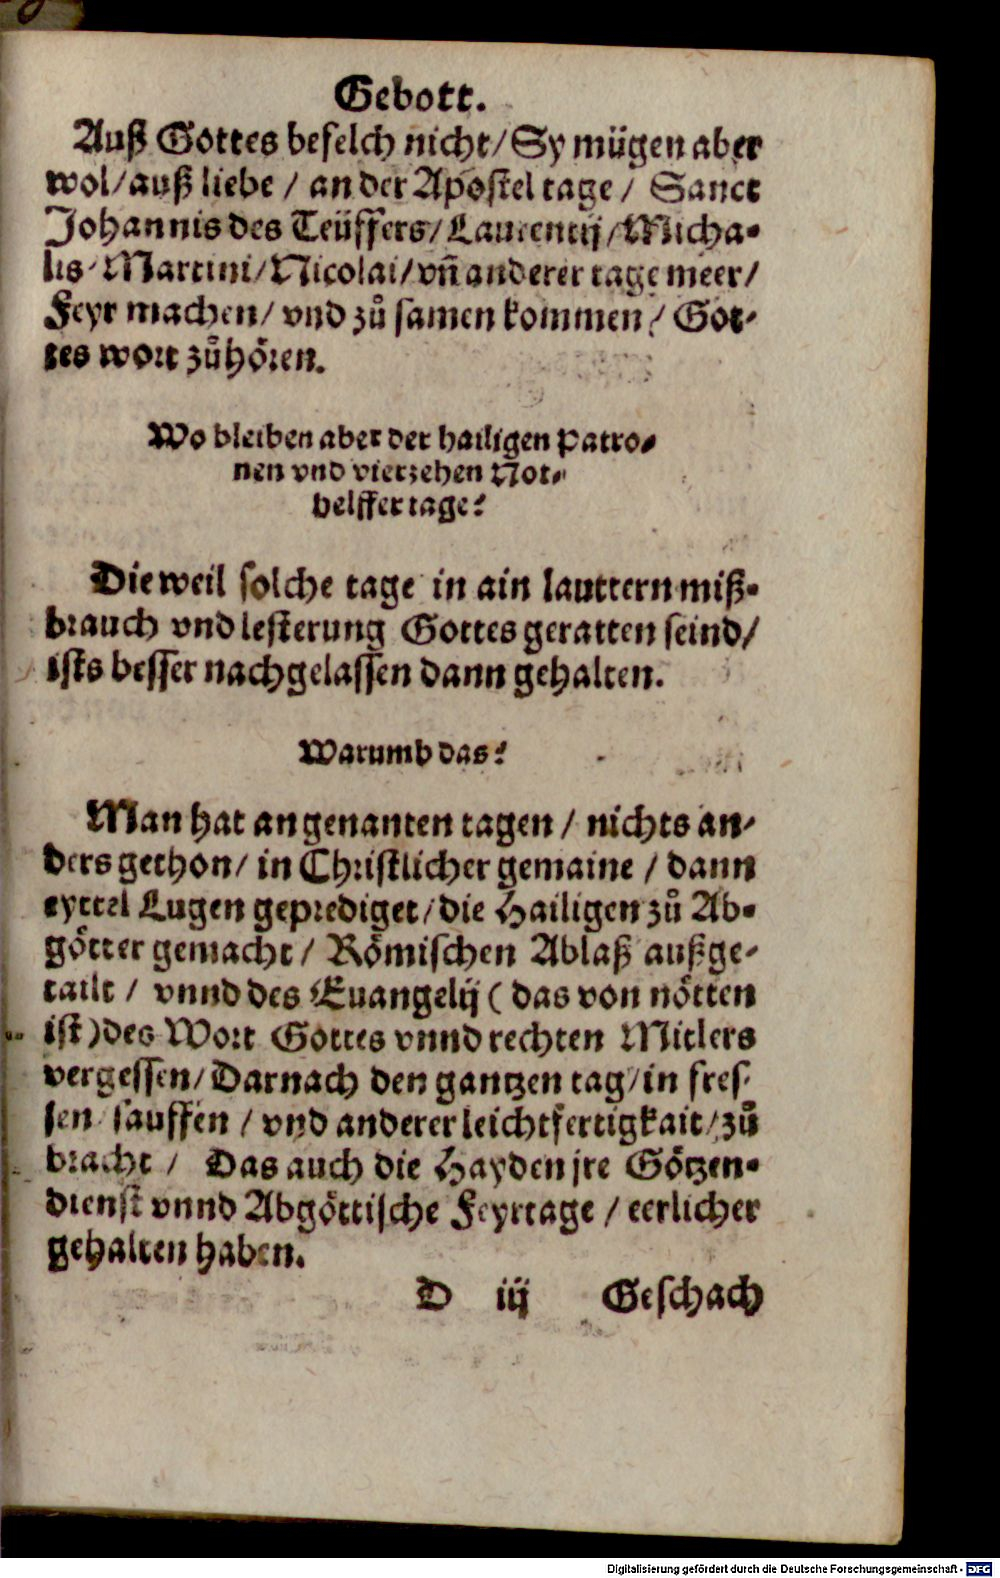 Gebott.
Auß Gottes befelch nicht/ Sy mügen aber
wol/ auß liebe / an der Apostel tage / Sanct
Johannis des Teüffers/ Laurentij/ Micha⸗
lis/ Martini/ Nicolai/ vñ anderer tage meer/
Feyr machen/ vnd zů samen kommen/ Got⸗
tes wort zůhören.
Wo bleiben aber der hailigen Patro⸗
nen vnd vierzehen Not⸗
helffer tage?
Die weil solche tage in ain lauttern miß⸗
brauch vnd lesterung Gottes geratten seind/
ists besser nachgelassen dann gehalten.
Warumb das?
Man hat an genanten tagen / nichts an⸗
ders gethon/ in Christlicher gemaine / dann
eyttel Lugen geprediget/ die Hailigen zů Ab⸗
götter gemacht/ Römischen Ablaß außge⸗
tailt / vnnd des Euangelij ( das von nötten
ist ) des Wort Gottes vnnd rechten Mitlers
vergessen/ Darnach den gantzen tag/ in fres⸗
sen/ sauffen / vnd anderer leichtfertigkait/ zů
bracht / Das auch die Hayden jre Götzen⸗
dienst vnnd Abgöttische Feyrtage / eerlicher
gehalten haben.
D iij Geschach
Digitalisierung gefördert durch die Deutsche Forschungsgemeinschaft - DFG